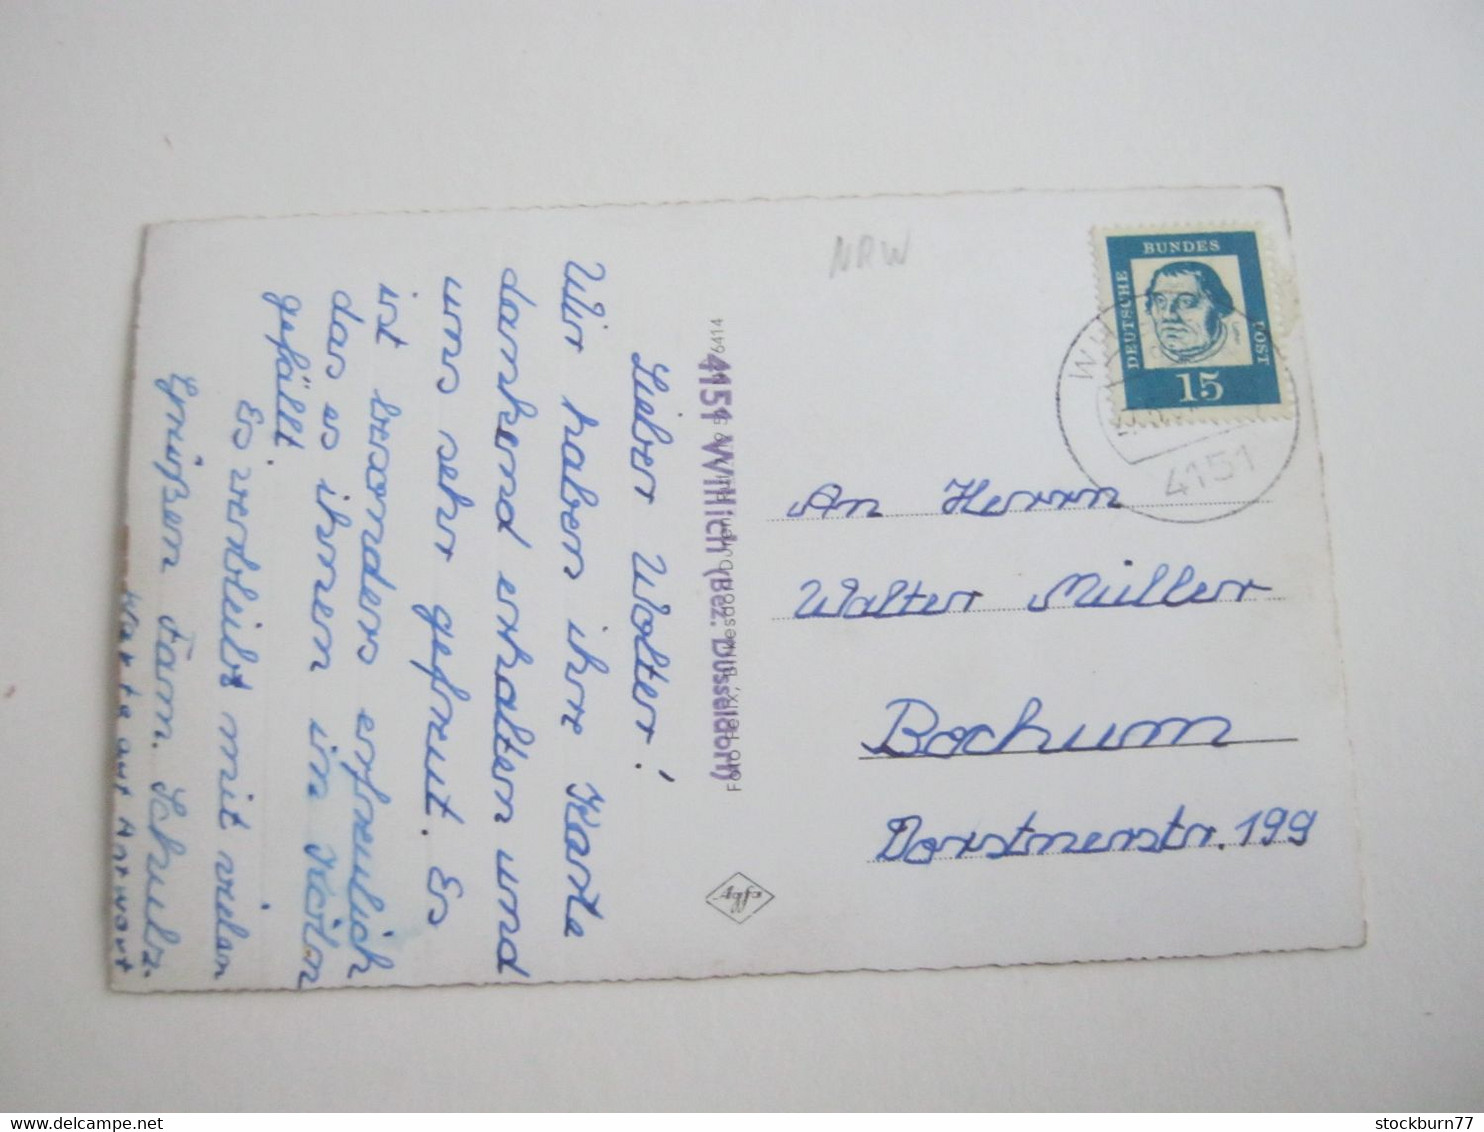 Lieber Wolter!
Wir haben ihre Karte
dankend erhalten und
uns sehr gefreut. Es
ist besonders erfreulich
das es ihnen im Köln
gefällt
Es verbleibt mit vielen
Grüßen Fam. Schulz.
Warte auf Antwort
4151 Willich (Bez. Düsseldorf)
6414
NRW
DEUTSCHE
BUNDES
POST
15
4151
An Herrn
Walter Müller
Bochum
Dorstnerstr. 199
stockburn77